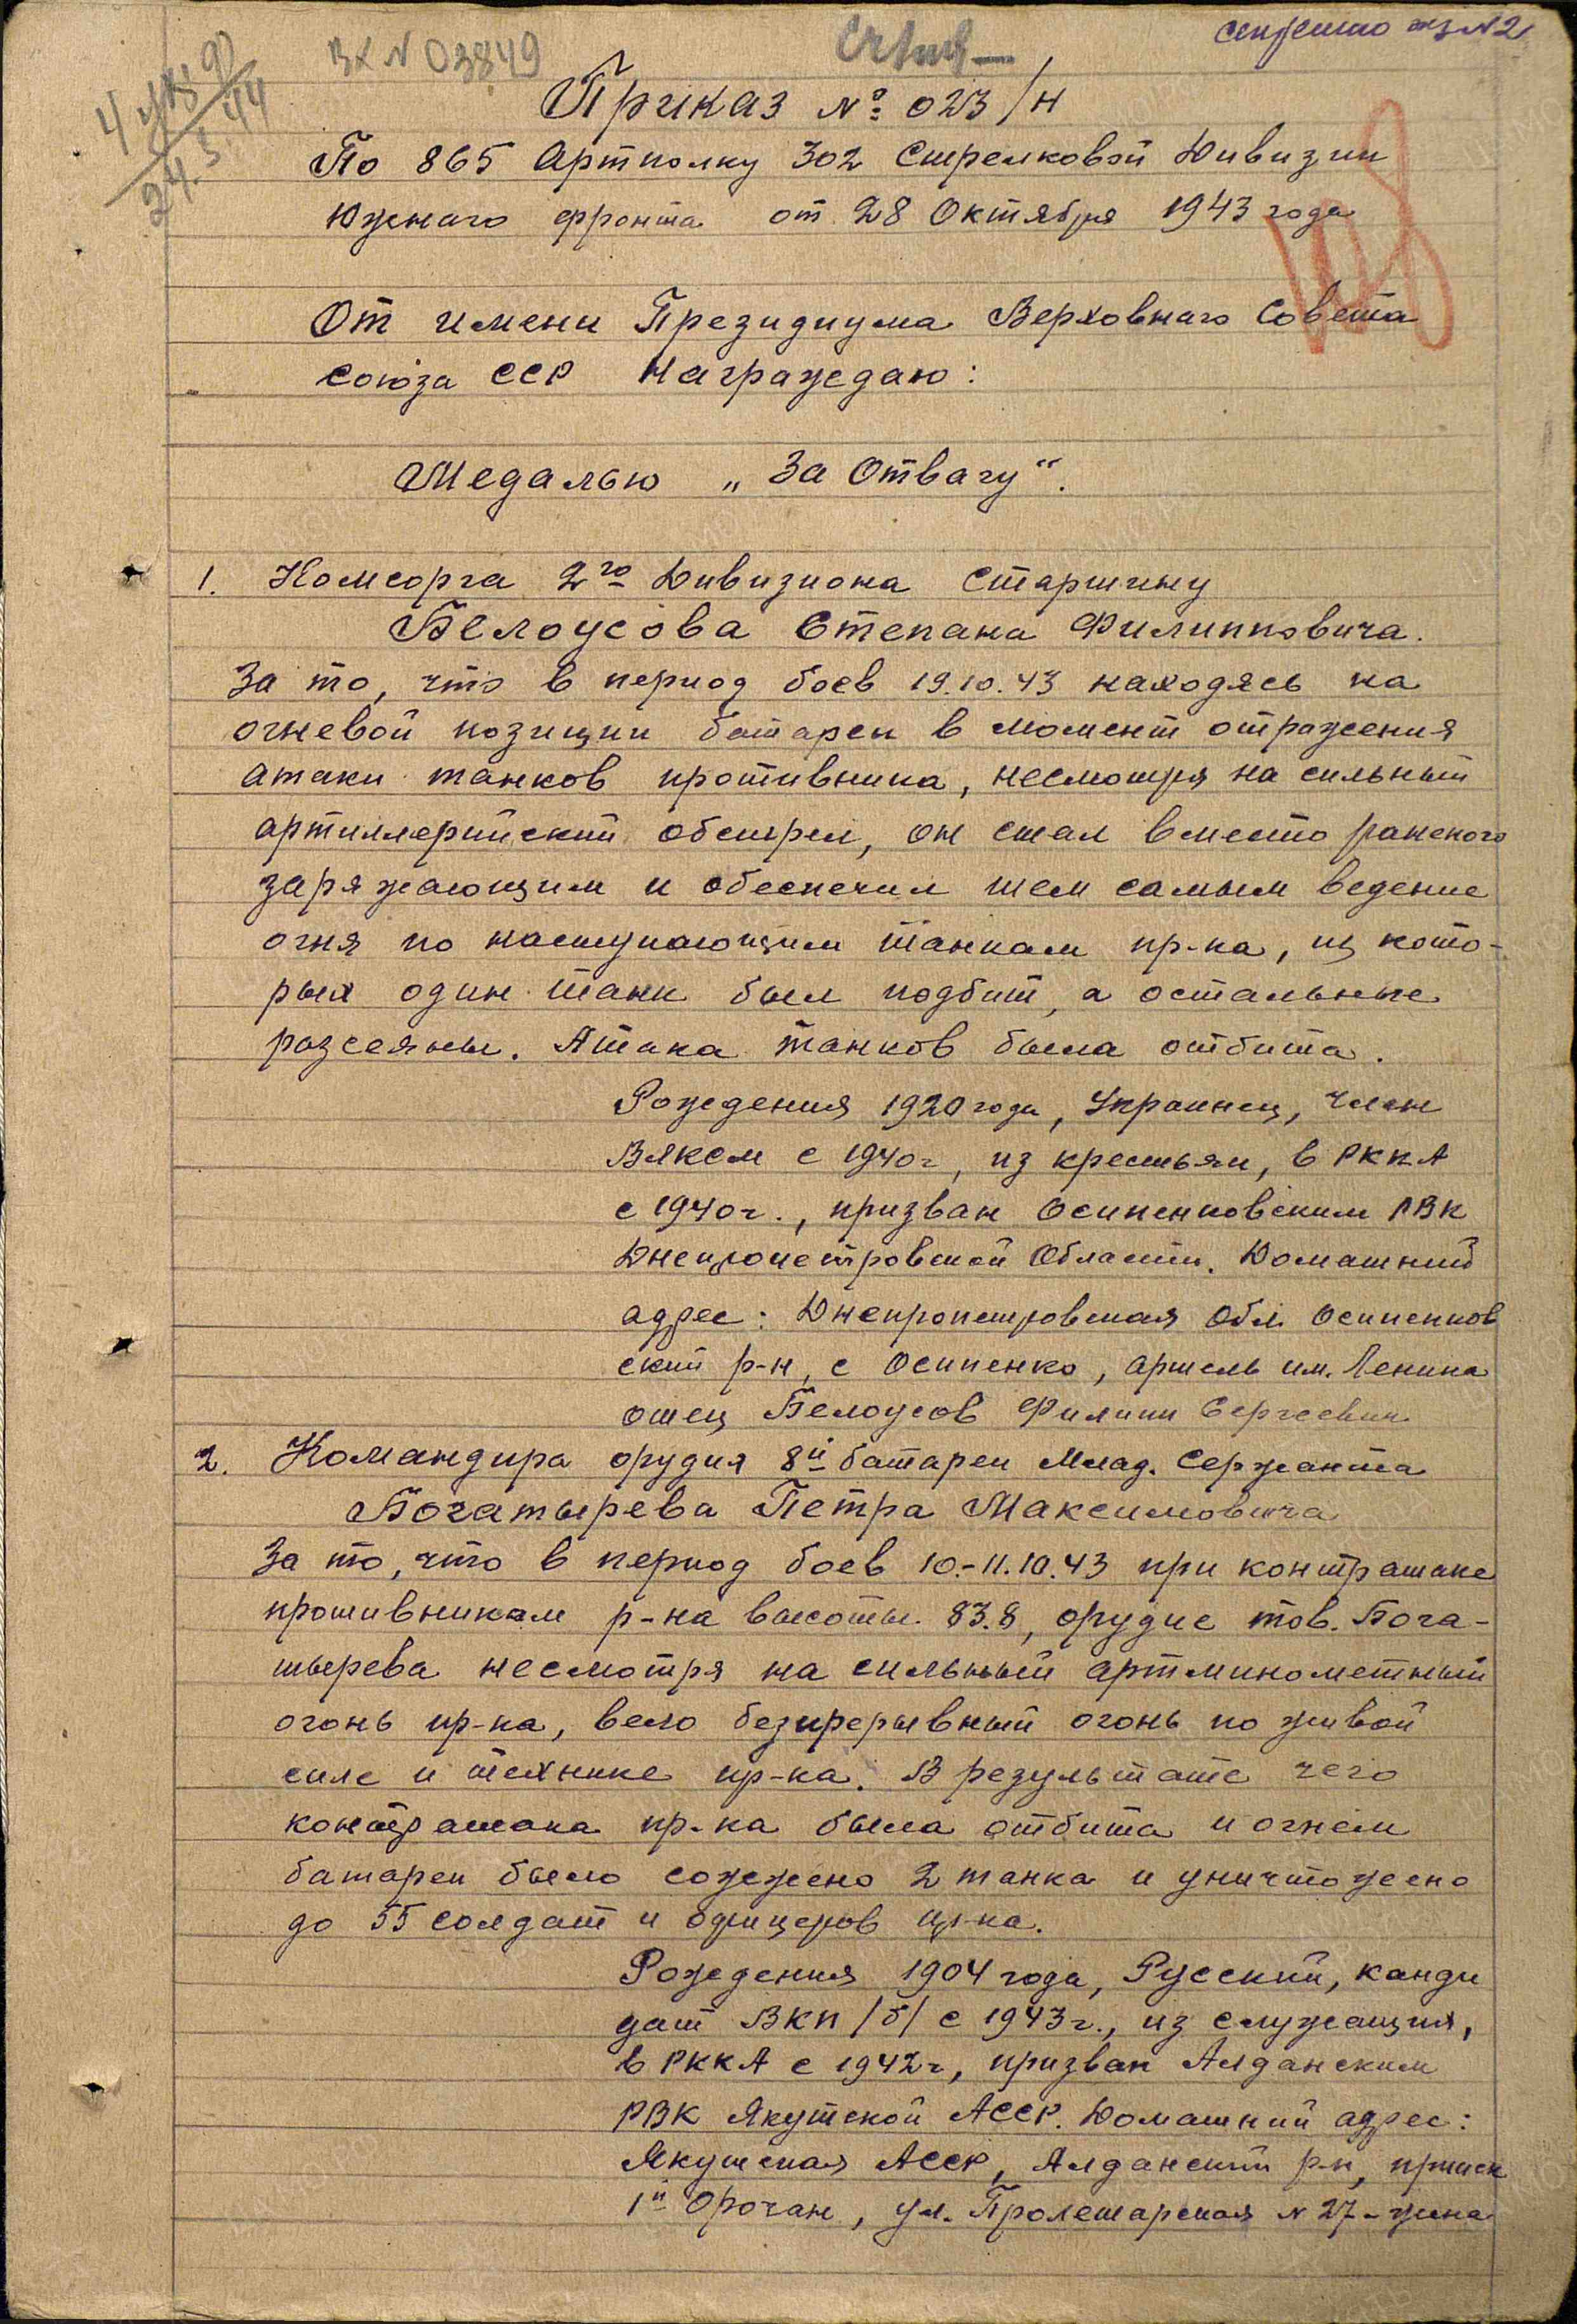 Вх N 03849
секретно экз N2
24.3.44
Приказ № 023/н
По 865 Артполку 302 Стрелковой Дивизии
Южного фронта от 28 Октября 1943 года
От имени Президиума Верховного Совета
Союза ССР Награждаю:
Медалью „За Отвагу“.
1. Комсорга 2го Дивизиона Старшину
Белоусова Степана Филипповича.
За то, что в период боев 19.10.43 находясь на
огневой позиции батареи в момент отражения
атаки танков противника, несмотря на сильный
артиллерийский обстрел, он стал вместо раненого
заряжающим и обеспечил тем самым ведение
огня по наступающим танкам пр-ка, из кото-
рых один танк был подбит, а остальные
разсеяны. Атака танков была отбита.
Рождения 1920 года, Украинец, член
ВЛКСМ с 1940г, из крестьян, в РККА
с 1940г., призван Осипенковским РВК
Днепропетровской Области. Домашний
адрес: Днепропетровская Обл. Осипенков
ский р-н, с Осипенко, артель им. Ленина
отец Белоусов Филипп Сергеевич
2. Командира орудия 8й батареи Млад. Сержанта
Богатырева Петра Максимовича
За то, что в период боев 10.-11.10.43 при контратаке
противником р-на высоты 83.8, орудие тов. Бога-
тырева несмотря на сильный артминометный
огонь пр-ка, вело безпрерывный огонь по живой
силе и технике пр-ка. В результате чего
контратака пр-ка была отбита и огнем
батареи было сожжено 2 танка и уничтожено
до 55 солдат и офицеров пр-ка.
Рождения 1904 года, Русский, канди
дат ВКП/б/ с 1943г., из служащих,
в РККА с 1942г, призван Алданским
РВК Якутской АССР. Домашний адрес:
Якутская АССР, Алданский р-н, прииск
1й Орочан, ул. Пролетарская N 27 - жена